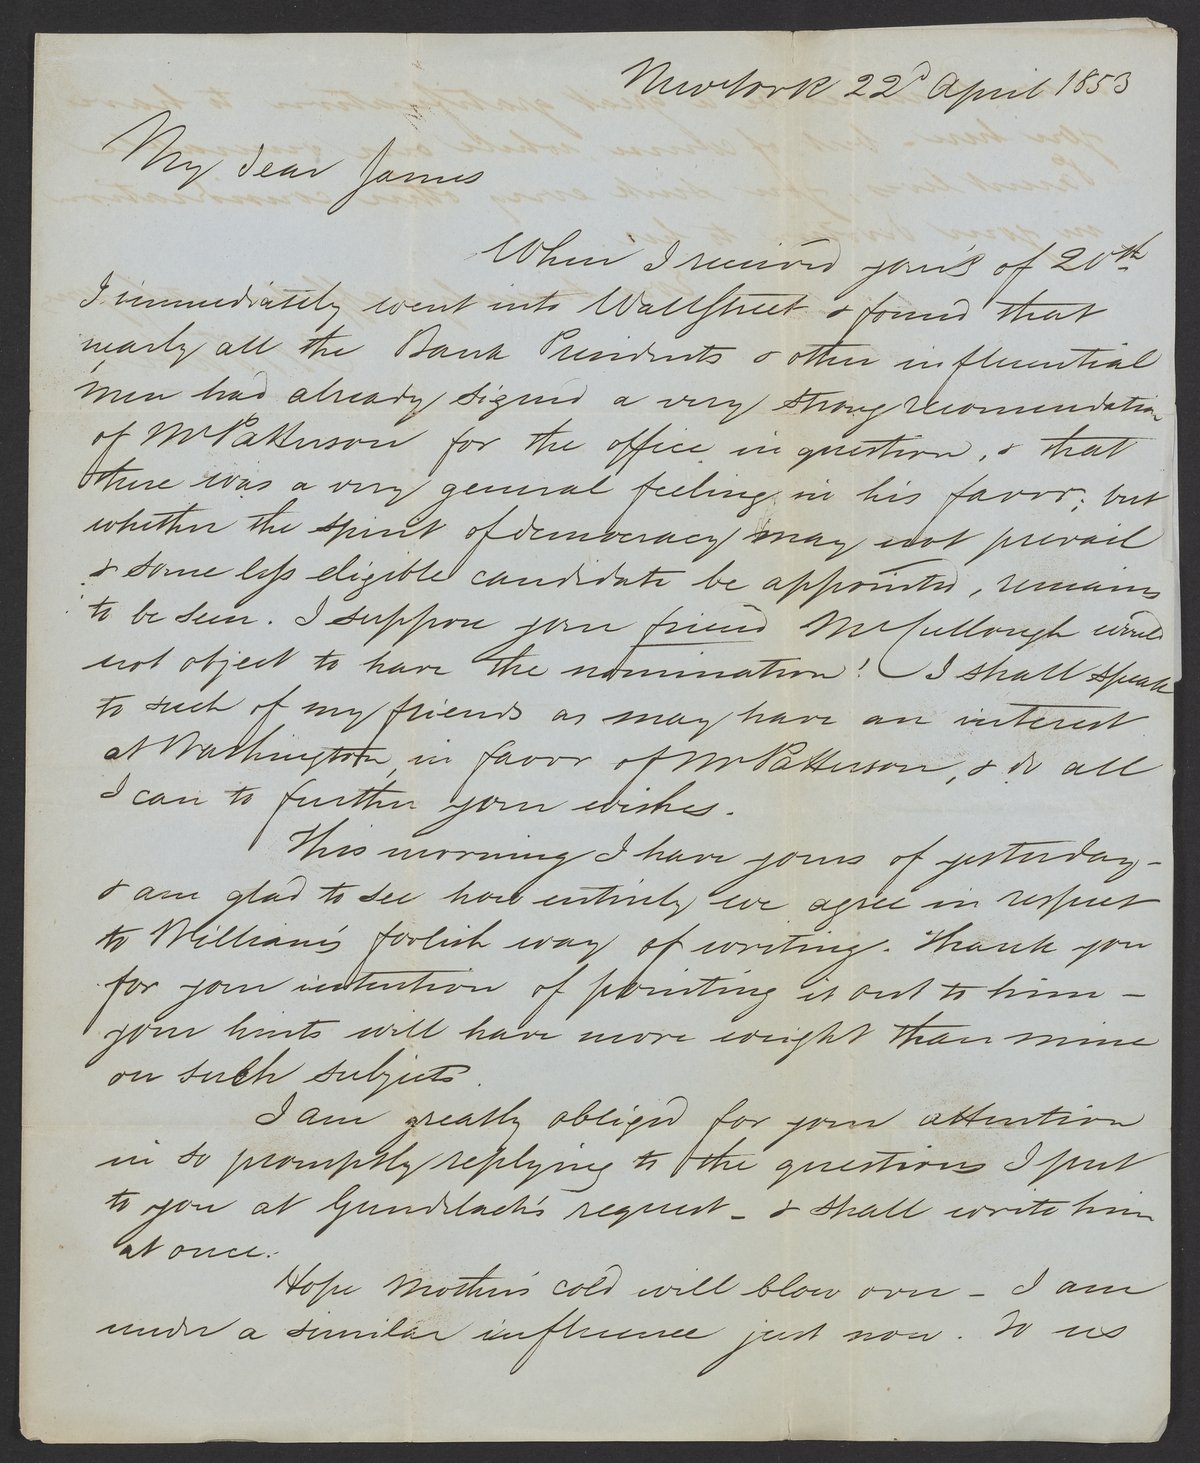 New York 22d April 1853
My dear James
When I receiv'd your's of 20th
I immediately went into Wall Street & found that
nearly all the Bank Presidents & other influential
men had already signed a very strong recomendation
of Mr Patterson for the office in question, & that
there was a very general feeling in his favor; but
whether the spirit of democracy may not prevail
& some less eligible candidate be appointed, remains
to be seen. I suppose your friend McCullough would
not object to have the nomination! I shall speak
to such of my friends as may have an interest
at Washington, in favor of Mr Patterson, & do all
I can to further your wishes.
This morning I have yours of yesterday -
& am glad to see how entirely we agree in respect
to William's foolish way of writing. Thank you
for your intention of pointing it out to him -
your hints will have more weight than mine
on such subjects.
I am greatly oblig'd for your attention
in so promptly replying to the questions I put
to you at Gundlach's request - & shall write him
at once.
Hope Mother's cold will blow over - I am
under a similar influence just now. To us